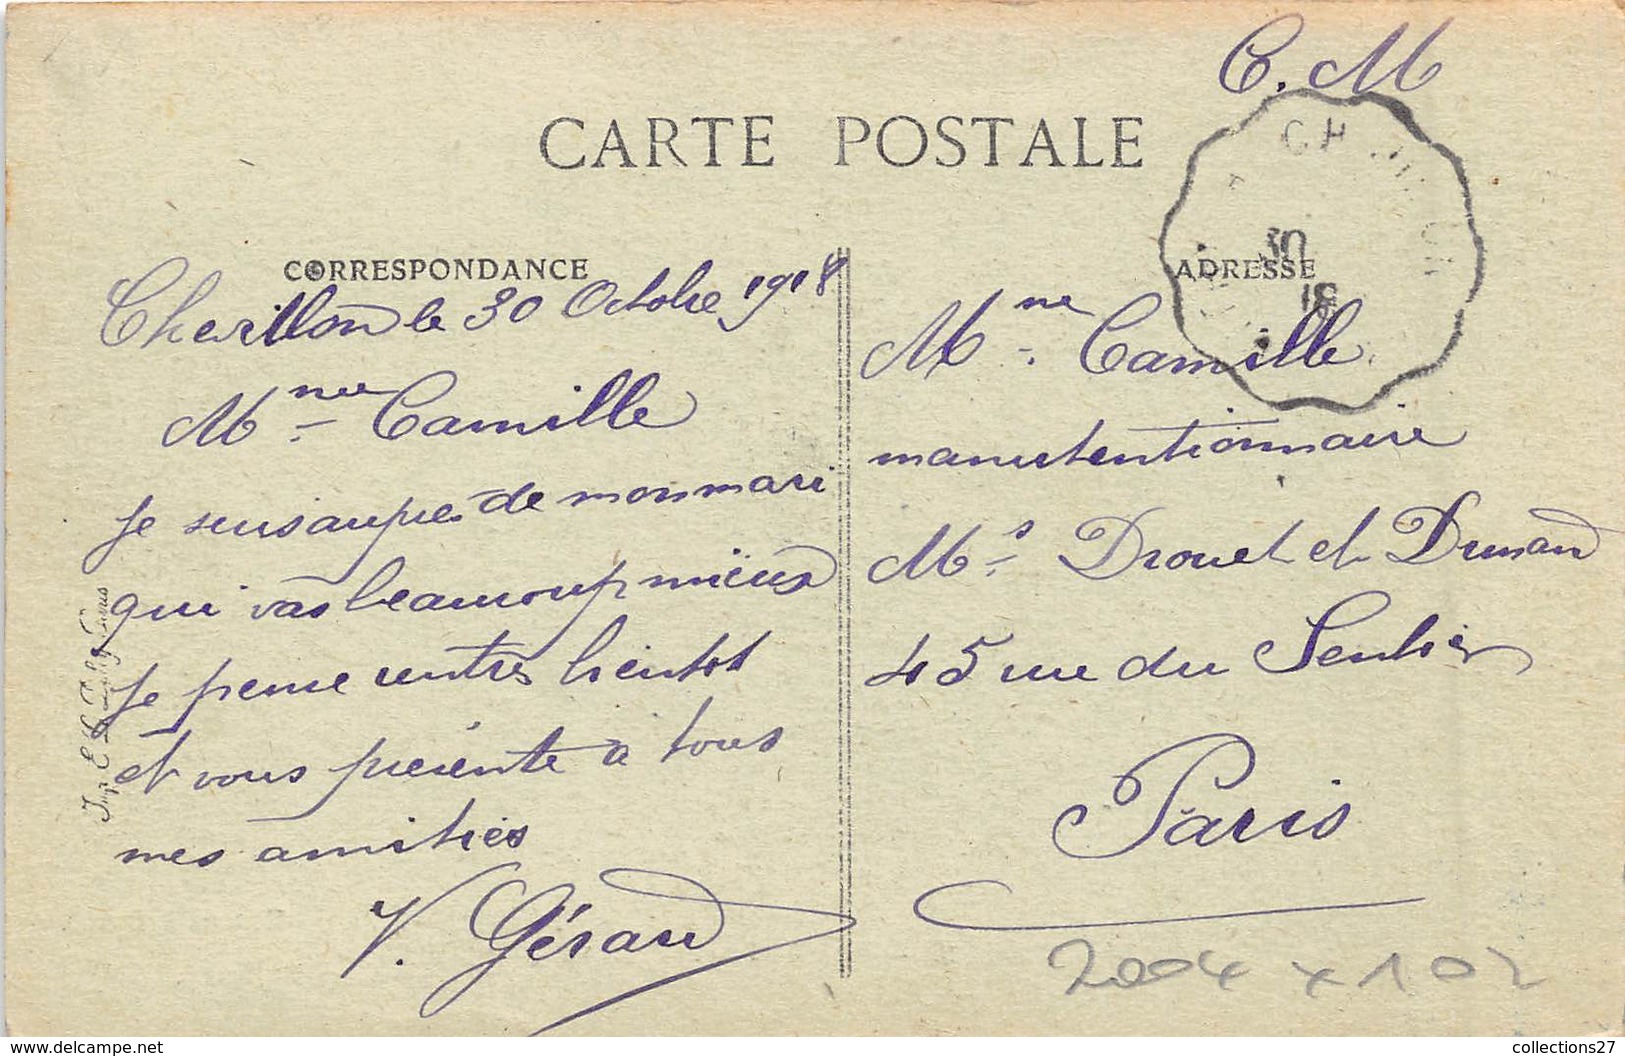 C. M
CARTE POSTALE
CORRESPONDANCE
Chevillon le 30 Octobre 1918
Mme Camille
je suis auprès de mon mari
qui vas beaucoup mieux
je pense rentres bientot
et vous présente a tous
mes amitiés
V. Gérard
ADRESSE
30
18
Mme Camille
manutentionnaire
Ms Drouet et Durand
45 rue du Sentier
Paris
2004 x 102
www.delcampe.net
collections27